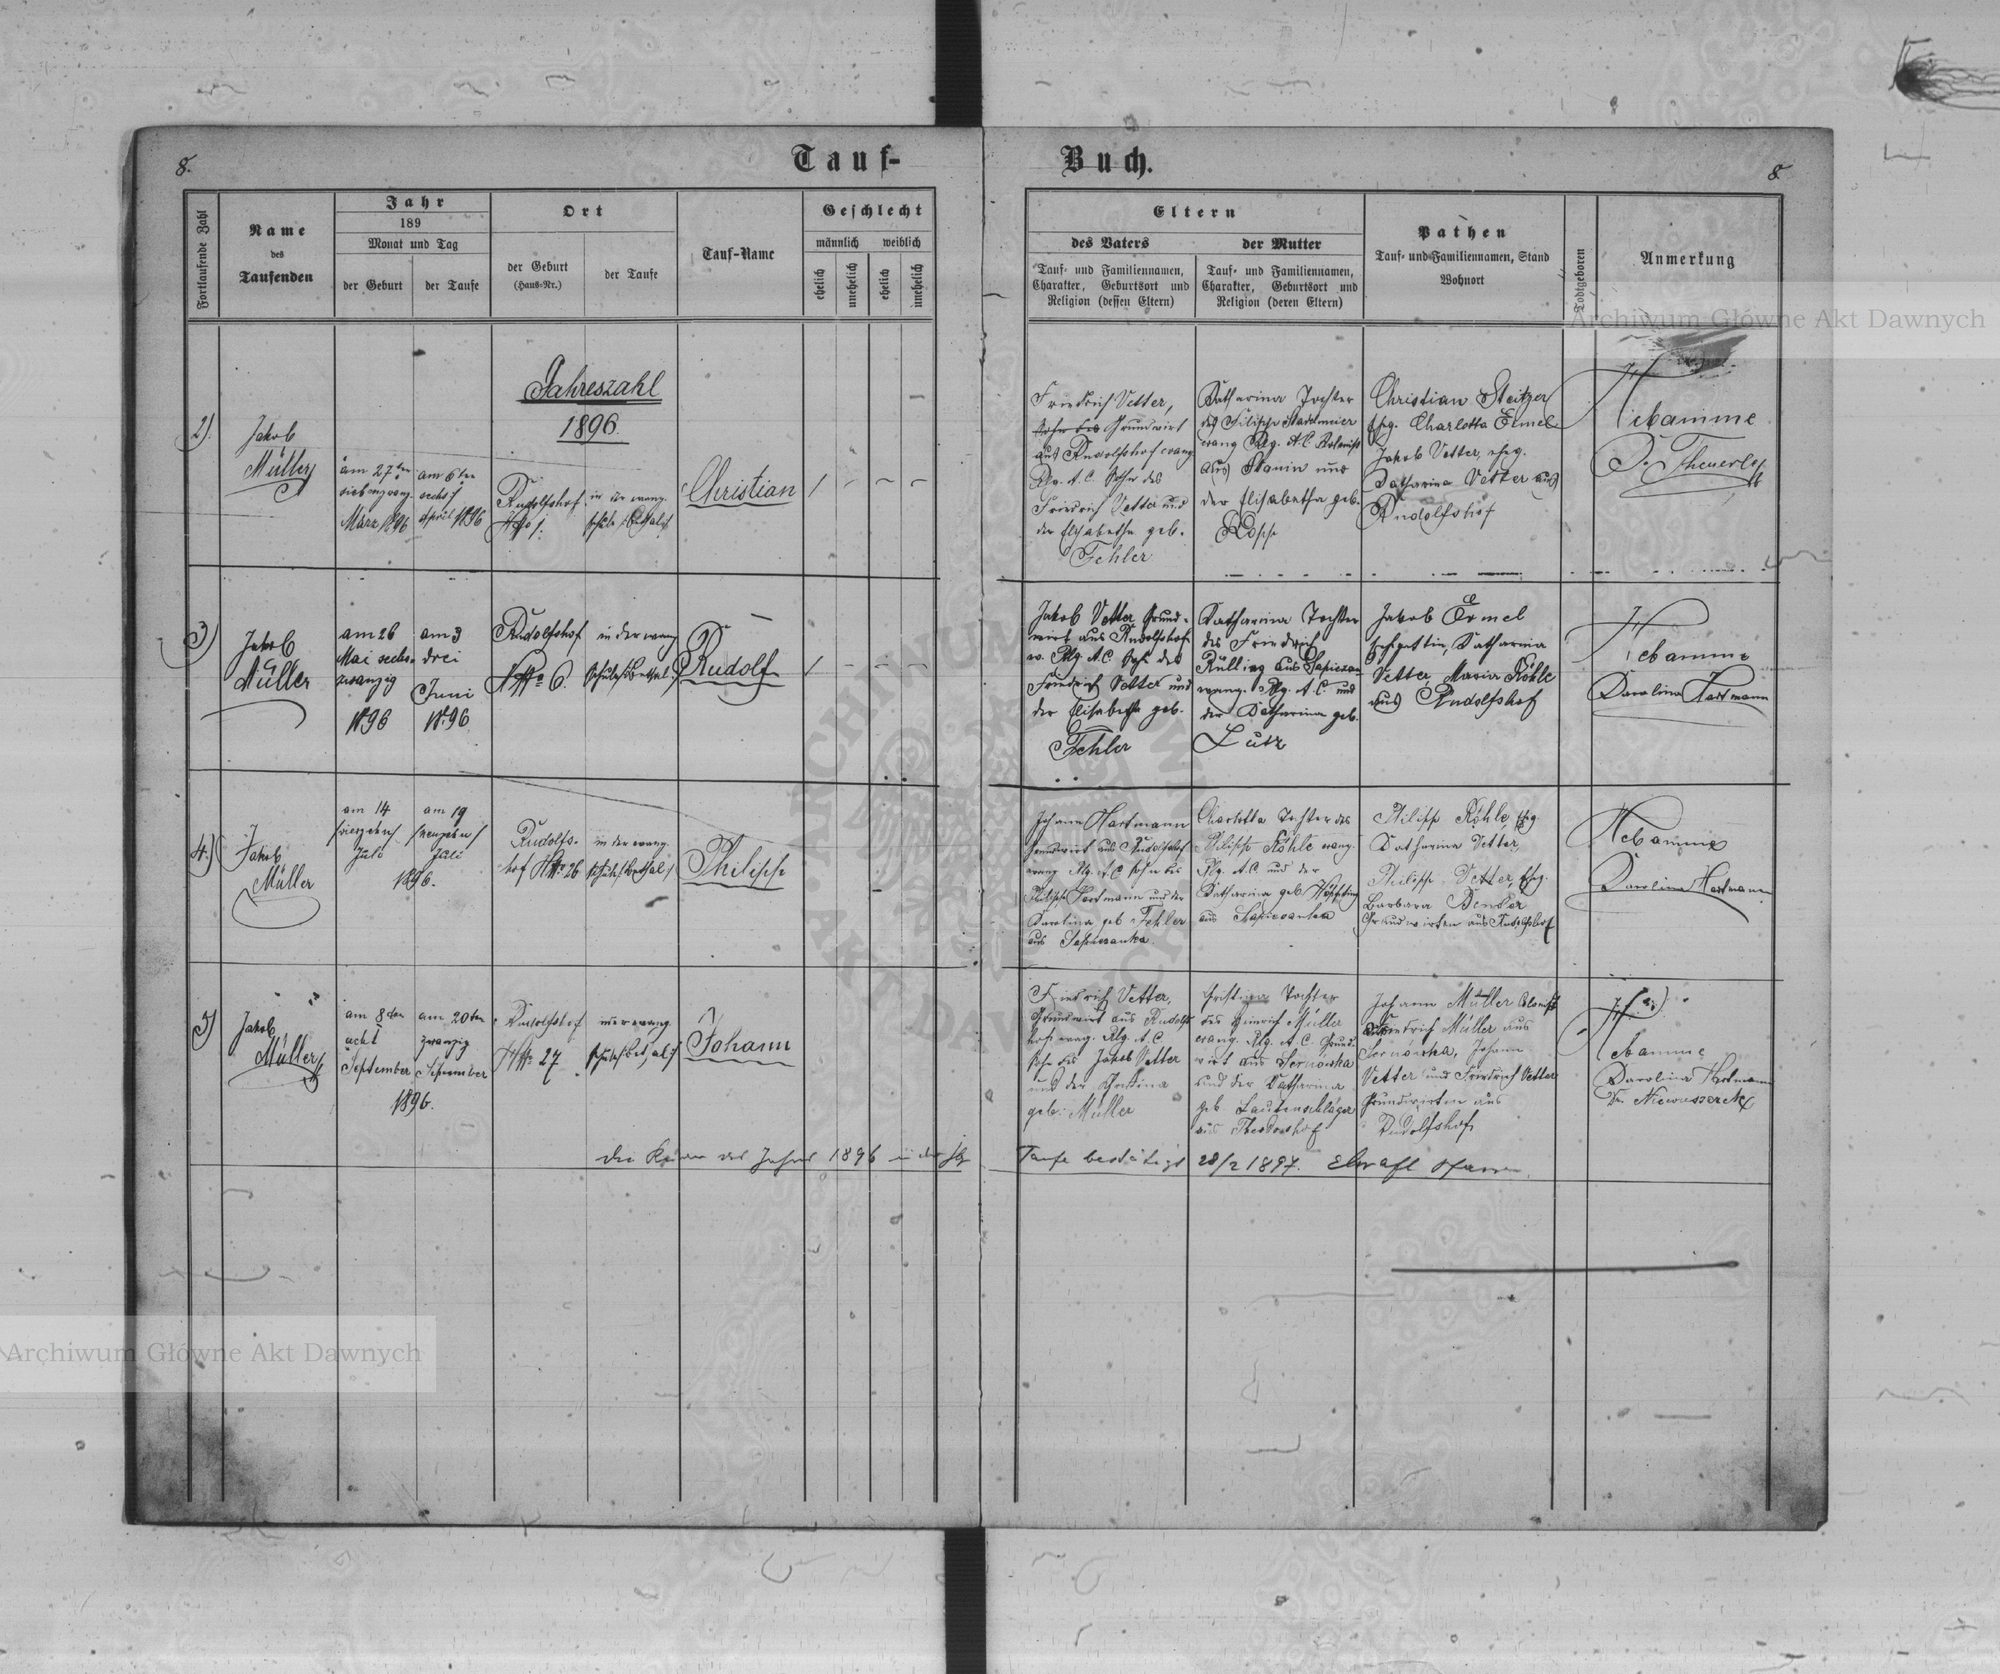 8.
Tauf-
Buch.
8
Fortlaufende Zahl
Name
des
Taufenden
Jahr
189
Monat und Tag
der Geburt
der Taufe
Ort
der Geburt
(Haus-Nr.)
der Taufe
Tauf-Name
Geschlecht
männlich
weiblich
ehelich
unehelich
ehelich
unehelich
Eltern
des Vaters
Tauf- und Familiennamen,
Charakter, Geburtsort und
Religion (dessen Eltern)
der Mutter
Tauf- und Familiennamen,
Charakter, Geburtsort und
Religion (deren Eltern)
Pathen
Tauf- und Familiennamen, Stand
Wohnort
Todtgeboren
Anmerkung
Archiwum Główne Akt Dawnych
Jahreszahl
1896.
2).
Jakob
Müller
am 27ten
März 1896
am 6ten
sechs
April 1896
Rudolfshof
in der evang.
Christian
Friedrich Vetter,
Grundwirt
aus Rudolfshof evang.
Rlg. A.C. Sohn des
Friedrich Vetter und
der Elisabetha geb.
Fehler
Katharina Tochter
evang Rlg. A.C.
aus Stanin und
der Elisabetha geb.
Christian Steitzer
Ehg. Charlotta Ermel
Jakob Vetter, ehg.
Katharina Vetter aus
Rudolfshof
Hebamme
3)
Jakob
Müller
am 26
Mai sechs-
zwanzig
1896
am 3
drei
Juni
1896
Rudolfshof
No 6.
in der evang
Rudolf
Jakob Vetter Grund-
wirt aus Rudolfshof
ev. Rlg. A.C. Sohn des
Friedrich Vetter und
der Elisabetha geb.
Fehler
Katharina Tochter
des Friedrich
Rülling aus
evang. Rlg. A.C. und
der Katharina geb.
Lutz
Jakob Ermel
Katharina
Vetter, Maria Köhle
aus Rudolfshof
Hebamme
Karolina Hartmann
4.)
Jakob
Müller
am 14
vierzehn
Juli
am 19
neunzehn
Juli
1896.
Rudolfs-
hof No 26
in der evang.
Philipp
Johann Hartmann
Grundwirt aus Rudolfshof
evang Rlg. A.C. Sohn des
Philipp Hartmann und der
Karolina geb Fehler
aus Sapiezanka.
Charlotta Tochter des
Philipp Köhle evang.
Rlg. A.C. und der
Katharina geb.
aus Sapiezanka
Philipp Köhle, Ehg.
Katharina Vetter,
Philipp Vetter, Ehg.
Barbara Bender
Grundwirten aus Rudolfshof
Hebamme
Karolina Hartmann
5)
Jakob
Müller
am 8ten
acht
September
am 20ten
zwanzig
September
1896.
Rudolfshof
No 27
in der evang.
Johann
Friedrich Vetter,
Grundwirt aus Rudolfs
hof evang. Rlg. A.C.
Sohn des Jakob Vetter
und der Christina
geb. Müller
Christina Tochter
des Heinrich Müller
evang. Rlg. A.C. Grund-
wirt aus
und der Katharina
geb. Lautenschläger
aus Theodorshof
Johann Müller Colonist
Friedrich Müller aus
Johann
Vetter und Friedrich Vetter
Grundwirten aus
Rudolfshof
Hebamme
Karolina Hartmann
des Jahres 1896 in der
Taufe bestätigt 28/2 1897.
Archiwum Główne Akt Dawnych